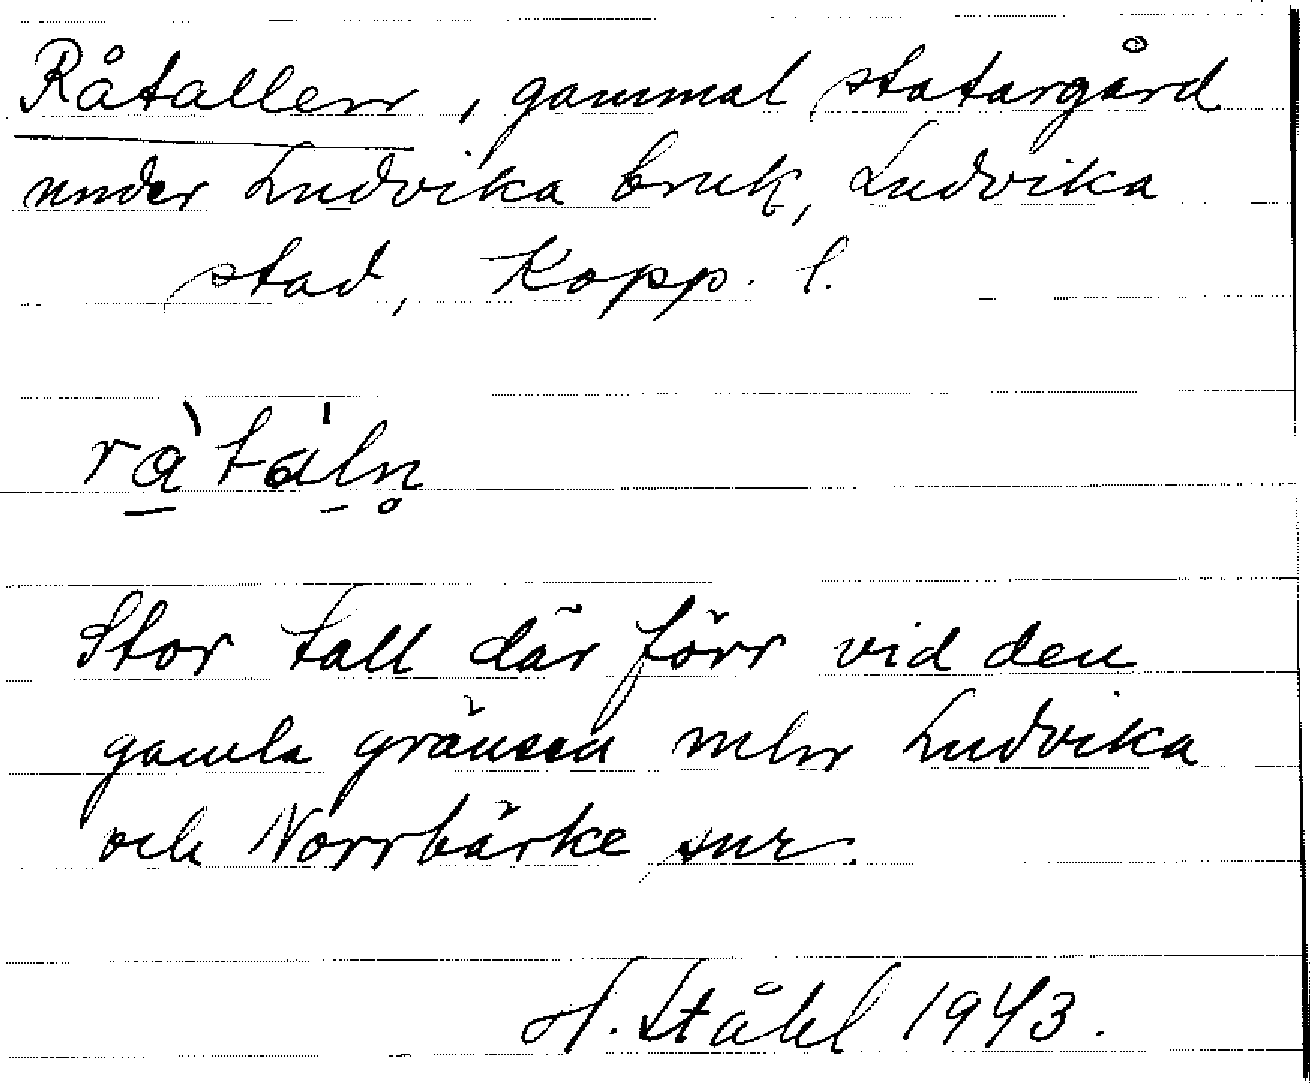 Råtallen, gammal statargård
under Ludvika bruk, Ludvika
stad, Kopp. l.
rà̱tál̠n̥
Stor tall där förr vid den
gamla gränsen mln Ludvika
och Norrbärke snr.
H. Ståhl 1943.